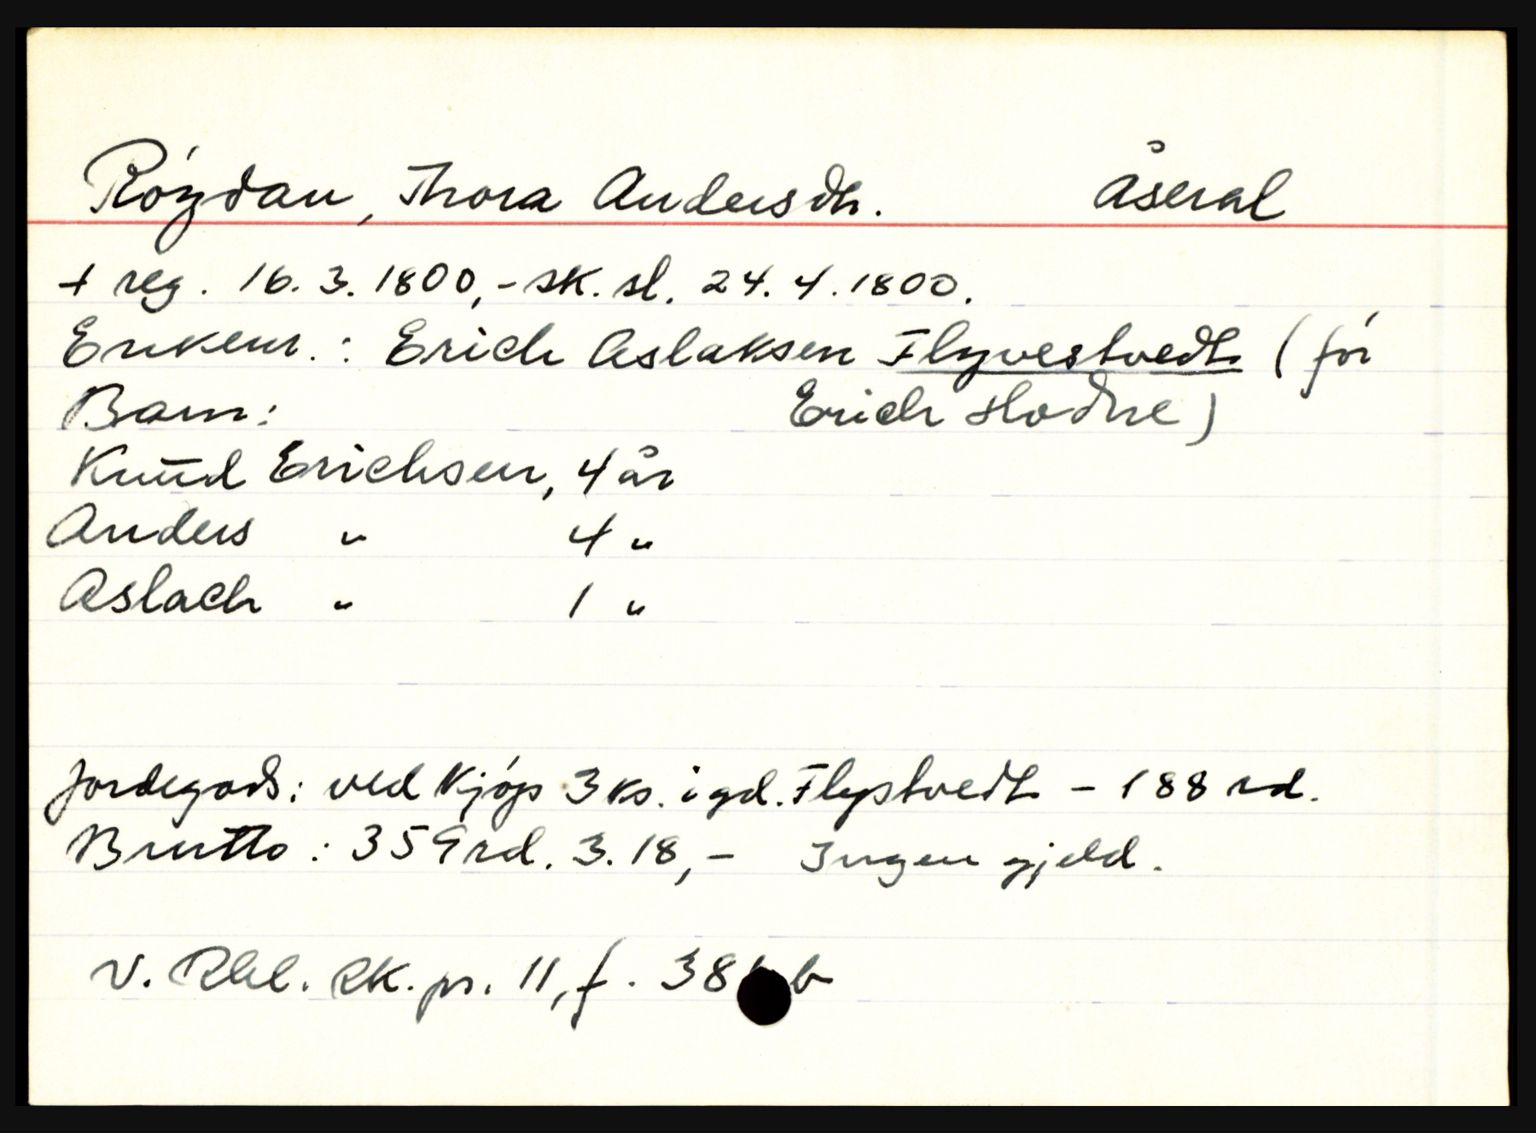 Róÿdan, Thora Andersdtr. Åseral
+ reg. 16.3.1800,- sk. sl. 24.4.1800.
Enkem.: Erich Aslaksen Flyvestvedt (fór
Barn: Erich Hodne)
Knūd Erichsen, 4 år
Anders " 4 "
Aslach " 1 "
Jordegods: ved kjóp 3 ks. i gd. Flystvedt - 188 rd.
Brutto: 359 rd. 3.18,- Ingen gjeld.
V. Rbl. Sk. pr. 11, f. 38 b